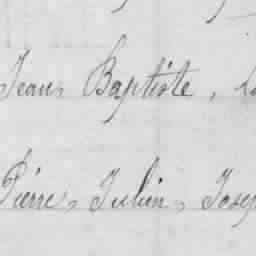 Jean, Baptiste,
Pierre, Julien,